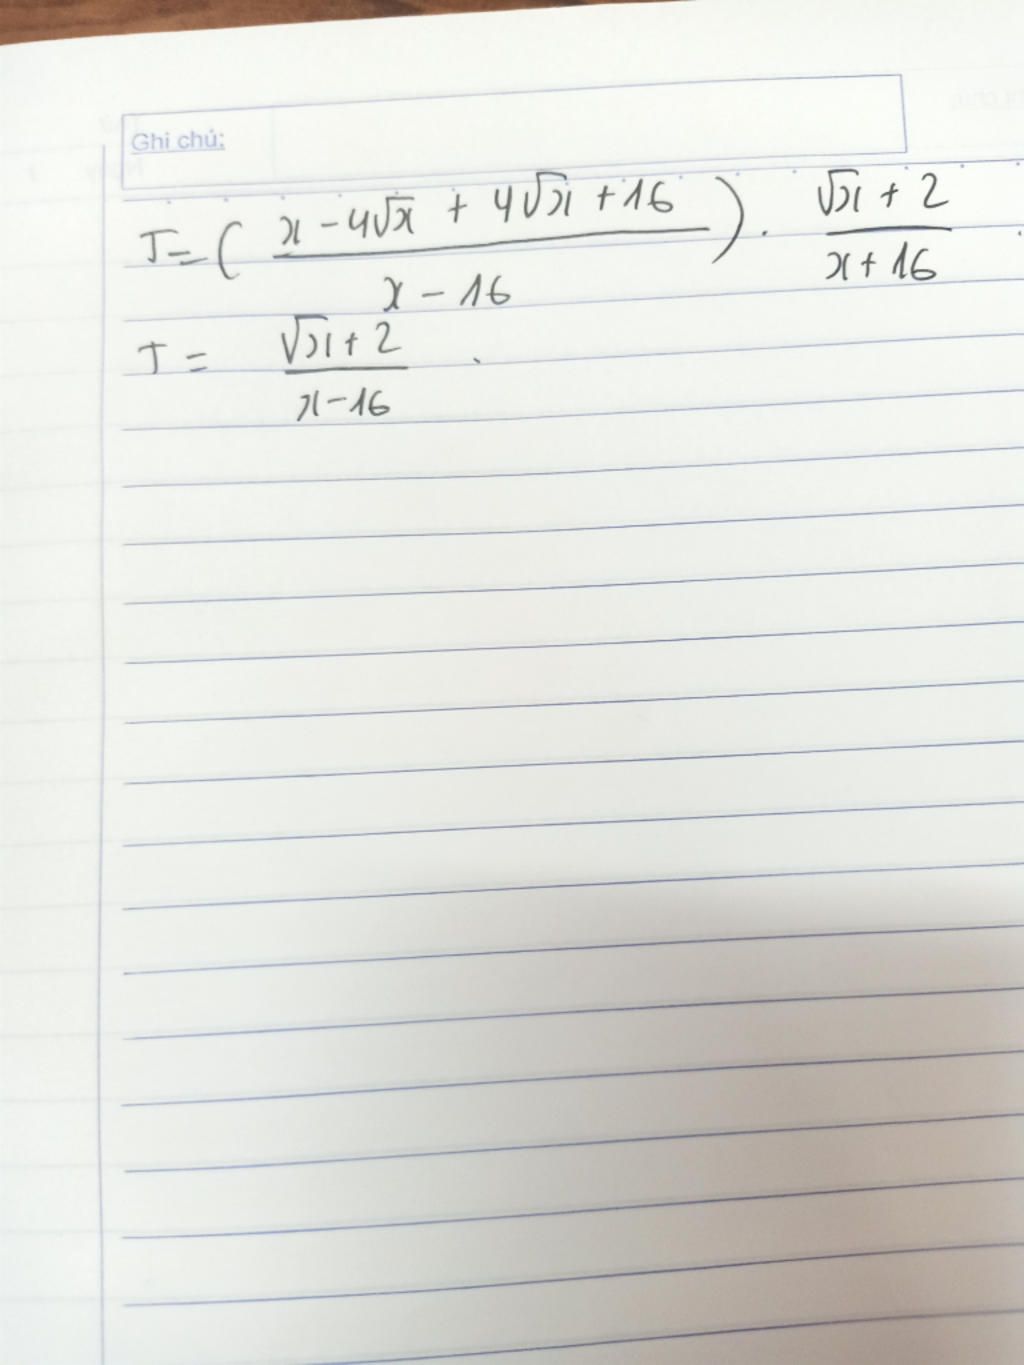 Ghi chú:
J = ( \frac{x - 4\sqrt{x} + 4\sqrt{x} + 16}{x - 16} ) . \frac{\sqrt{x} + 2}{x + 16}
J = \frac{\sqrt{x} + 2}{x - 16} .